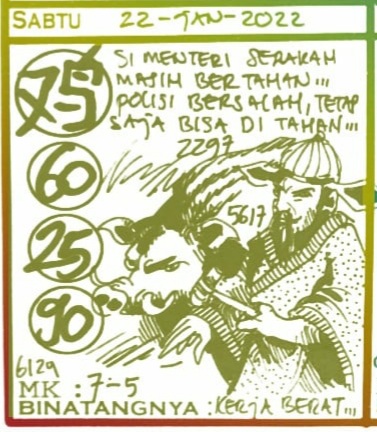 SABTU 22-JAN-2022
75
SI MENTERI SERAKAH
MASIH BERTAHAN...
POLISI BERSALAH, TETAP
SAJA BISA DI TAHAN...
2297
60
5617
25
90
6129
MK : 7-5
BINATANGNYA : KERJA BERAT...